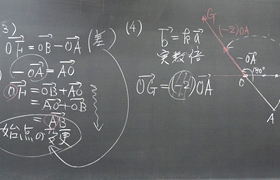 3)
OH = OB - OA (差)
-OA = AO
OH = OB + AO
= AO + OB
= AB
始点の変更
(4)
b = ka
実数倍
OG = (-2)OA
G (-2)OA
-OA
180°
O
A